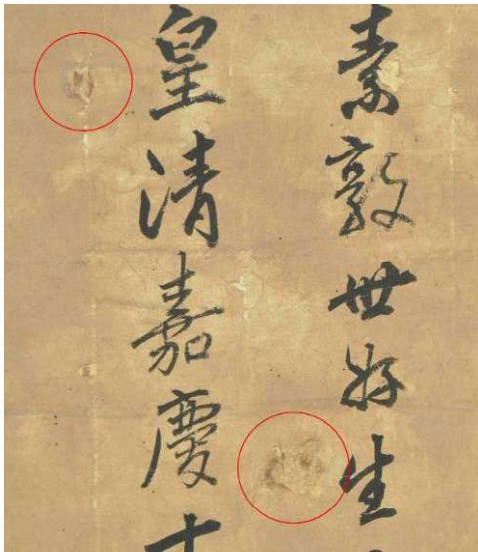 素敦世好生
皇清嘉慶十